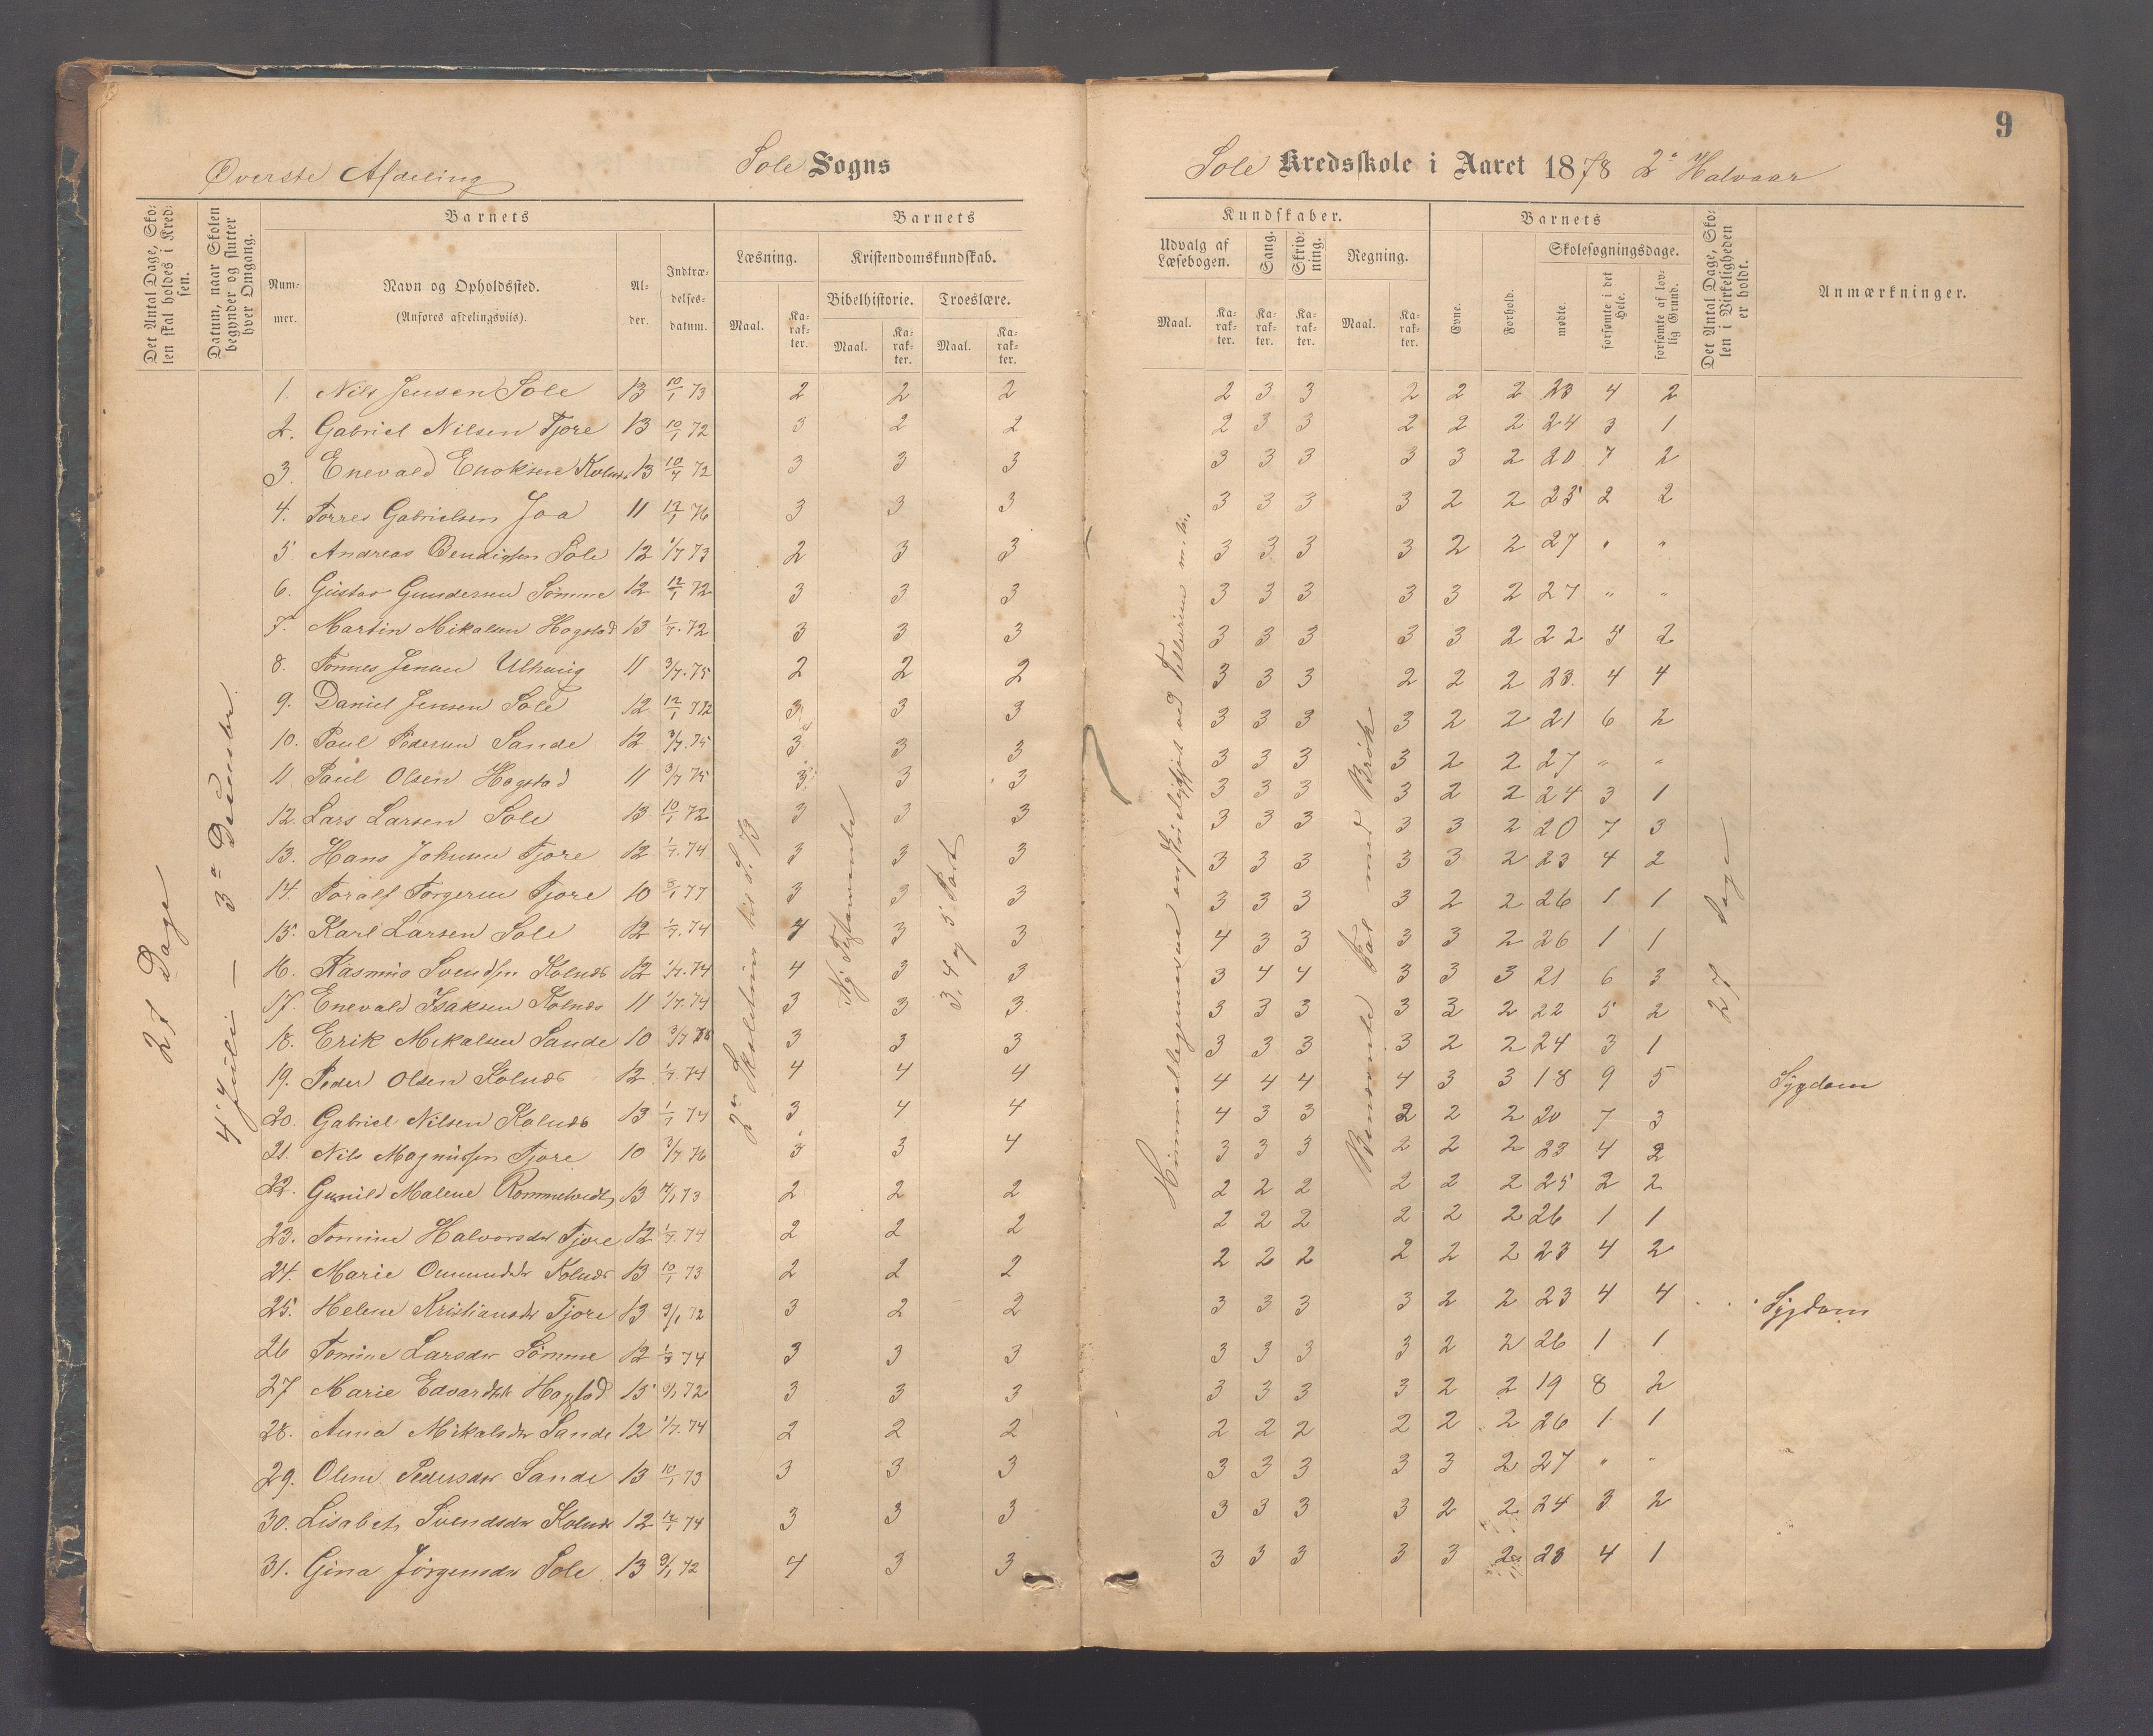 9
Øverste Afdeling
Sole Sogns
Sole Kredsskole i Aaret 1878 2det Halvaar
Det Antal Dage, Skolen skal holdes i Kredsen.
Datum, naar Skolen begynder og slutter hver Omgang.
Barnets
Barnets
Kundskaber.
Barnets
Det Antal Dage, Skolen i Virkeligheden er holdt.
Anmærkninger.
Nummer.
Navn og Opholdssted.
(Anføres afdelingsviis).
Alder.
Indtrædelsesdatum.
Læsning.
Kristendomskundskab.
Udvalg af Læsebogen.
Sang.
Skrivning.
Regning.
Evne.
Forhold.
Skolesøgningsdage.
Bibelhistorie.
Troeslære.
Maal.
Karakter.
Maal.
Karakter.
Maal.
Karakter.
Maal.
Karakter.
Karakter.
Karakter.
Maal.
Karakter.
mødte.
forsømte i det Hele.
forsømte af lovlig Grund.
27 Dage
4de Juli — 3de December
3, 4 og 5 Part
27 Dage
1. Nils Jensen Sole 13 10/1 73 2 2 2 2 3 3 2 2 2 23 4 2
2. Gabriel Nilsen Tjore 13 10/1 72 3 2 2 2 3 3 2 2 2 24 3 1
3. Enevald Enoksen Kolnæs 13 10/7 72 3 3 3 3 3 3 3 3 2 20 7 2
4. Torres Gabrielsen Joa 11 12/1 76 3 3 3 3 3 3 3 2 2 25 2 2
5 Andreas Bendigtsen Sole 12 1/7 73 2 3 3 3 3 3 3 2 2 27 " "
6. Gustav Gundersen Sømme 12 12/1 72 3 3 3 3 3 3 3 3 2 27 " "
7. Martin Mikalsen Hogstad 13 1/7. 72 3 3 3 3 3 3 3 3 2 22 5 2
8. Tønnes Jensen 11 3/7. 75 2 2 2 3 3 3 2 2 2 23 4 4
9. Daniel Jensen Sole 12 12/1 72 3 3 3 3 3 3 3 2 2 21 6 2
10. Paul Pedersen Sande 12 3/7. 75 3 3 3 3 3 3 3 2 2 27 " "
11 Paul Olsen Hogstad 11 3/7 75 3 3 3 3 3 3 3 2 2 24 3 1
12. Lars Larsen Sole 13 10/1 72 3 3 3 3 3 3 3 3 2 20 7 3
13. Hans Johnsen Tjore 12 1/7. 74 3 3 3 3 3 3 3 3 2 23 4 2
14. Toralf Torgersen Tjore 10 8/1 77 3 3 3 3 3 3 3 2 2 26 1 1
15. Karl Larsen Sole 12 1/7. 74 4 3 3 4 3 3 3 3 2 26 1 1
16. Rasmus Svendsen Kolnæs 12 1/7. 74 4 3 3 3 4 4 3 3 3 21 6 3
17. Enevald Isaksen Kolnæs 11 1/7. 74 3 3 3 3 3 3 3 3 2 22 5 2
18. Erik Mikalsen Sande 10 3/7 3 3 3 3 3 3 3 2 2 24 3 1
19. Peder Olsen Kolnæs 12 1/7. 74 4 4 4 4 4 4 4 3 3 18 9 5 Sygdom
20. Gabriel Nilsen Kolnæs 13 1/7 74 3 4 4 4 3 3 2 2 2 20 7 3
21. Nils Magnussen Tjore 10 3/7 76 3 3 4 3 3 3 2 2 2 23 4 2
22. Gunild Malene 13 73 2 2 2 2 2 2 2 2 2 25 2 2
23. Tomine Halvorsdtr Tjore 12 1/7. 74 2 2 2 2 2 2 2 2 2 26 1 1
24. Marie Kolnæs 13 10/1 73 2 2 2 2 2 2 2 2 2 23 4 2
25. Helene Kristiansdtr Tjore 13 9/1 72 3 2 2 3 3 3 3 2 2 23 4 4 Sygdom
26 Tomine Larsdtr Sømme 12 1/7 74 3 3 3 3 3 3 3 2 2 26 1 1
27 Marie Edvardsdtr Hogstad 13 9/1 72 3 3 3 3 3 3 3 2 2 19 8 2
28. Anna Mikalsdtr Sande 12 1/7. 74 2 2 2 2 2 2 2 2 2 26 1 1
29. Oline Pedersdtr Sande 13 10/1 73 3 3 3 3 3 3 3 3 2 27 " "
30. Lisabeth Svendsdtr Kolnæs 12 12/1 74 3 3 3 3 3 3 3 2 2 24 3 2
31. Gina Jørgensdtr Sole 13 9/1 72 4 3 3 3 3 3 3 3 2 23 4 1